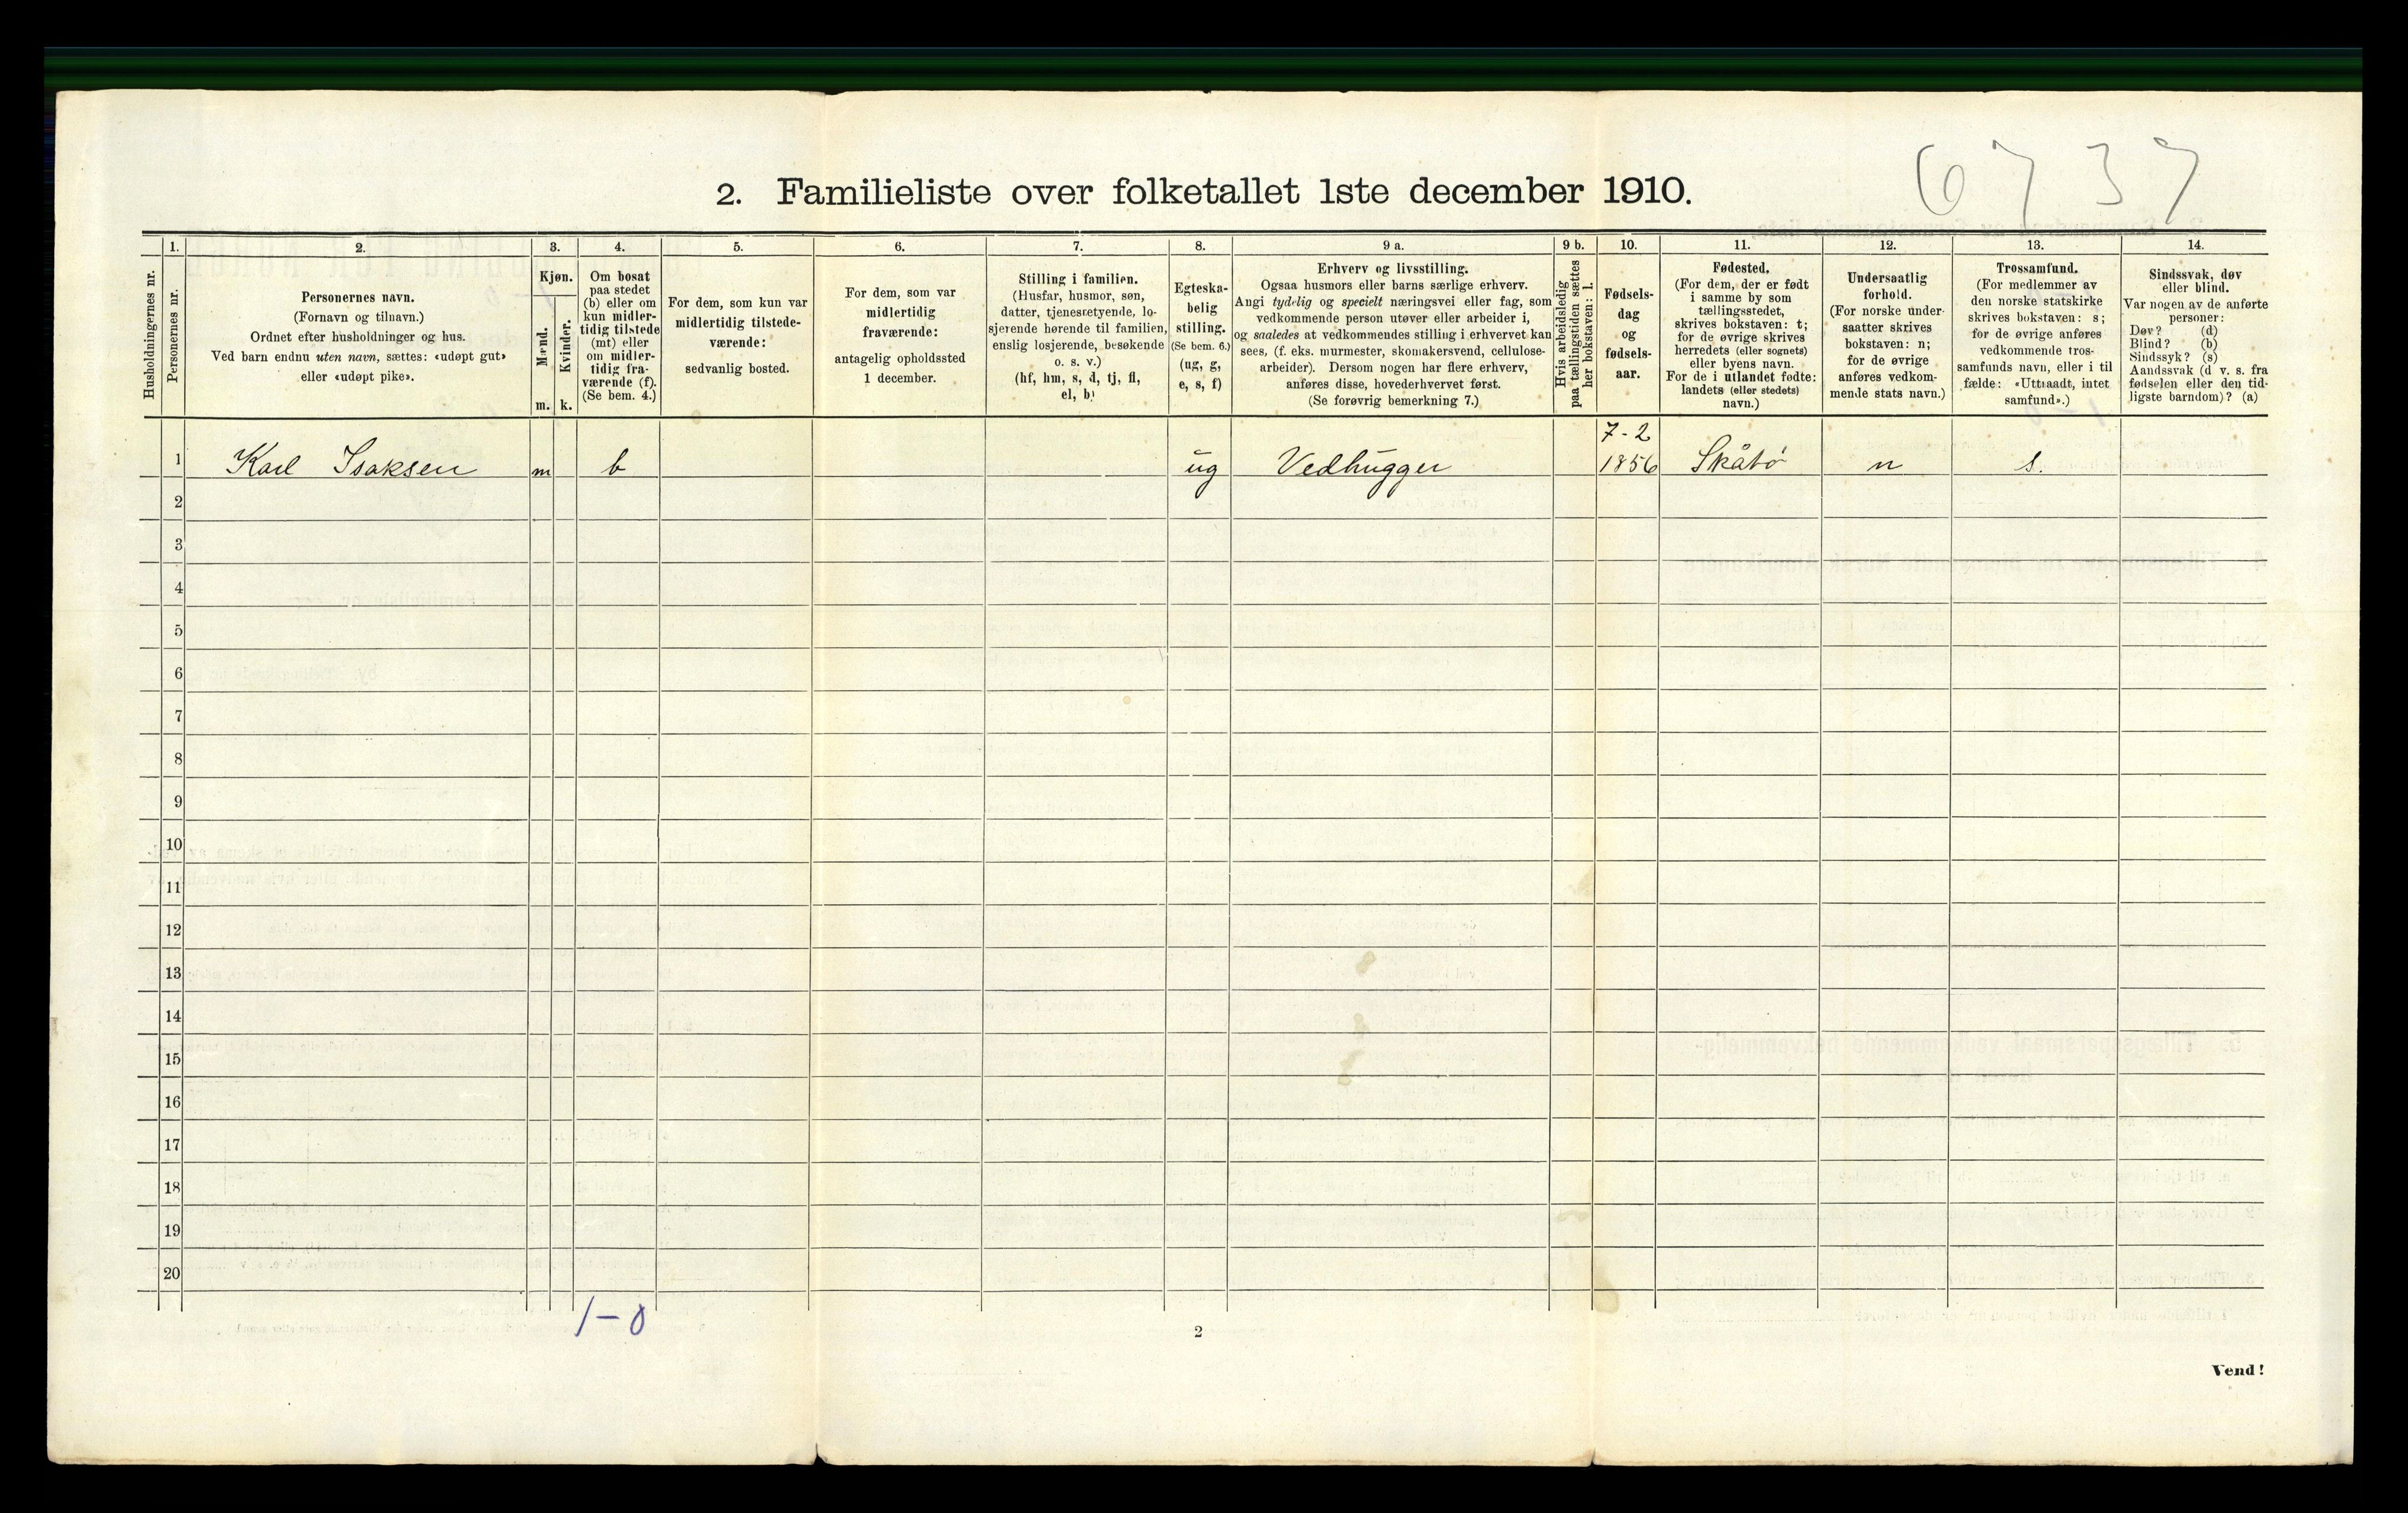 6737
2. Familieliste over folketallet 1ste december 1910.
Husholdningernes nr.
1.
Personernes nr.
2.
Personernes navn.
(Fornavn og tilnavn.)
Ordnet efter husholdninger og hus.
Ved barn endnu uten navn, sættes: «udøpt gut»
eller «udøpt pike».
3.
Kjøn.
Mænd.
Kvinder.
m. k.
4.
Om bosat
paa stedet
(b) eller om
kun midler-
tidig tilstede
(mt) eller
om midler-
tidig fra-
værende (f).
(Se bem. 4.)
5.
For dem, som kun var
midlertidig tilstede-
værende:
sedvanlig bosted.
6.
For dem, som var
midlertidig
fraværende:
antagelig opholdssted
1 december.
7.
Stilling i familien.
(Husfar, husmor, søn,
datter, tjenestetyende, lo-
sjerende hørende til familien,
enslig losjerende, besøkende
o. s. v.)
(hf, hm, s, d, tj, fl,
el, b)
8.
Egteska-
belig
stilling.
(Se bem. 6.)
(ug, g,
e, s, f)
9 a.
Erhverv og livsstilling.
Ogsaa husmors eller barns særlige erhverv.
Angi tydelig og specielt næringsvei eller fag, som
vedkommende person utøver eller arbeider i,
og saaledes at vedkommendes stilling i erhvervet kan
sees, (f. eks. murmester, skomakersvend, cellulose-
arbeider). Dersom nogen har flere erhverv,
anføres disse, hovederhvervet først.
(Se forøvrig bemerkning 7.)
9 b.
Hvis arbeidsledig
paa tællingstiden sættes
her bokstaven: l.
10.
Fødsels-
dag
og
fødsels-
aar.
11.
Fødested.
(For dem, der er født
i samme by som
tællingsstedet,
skrives bokstaven: t;
for de øvrige skrives
herredets (eller sognets)
eller byens navn.
For de i utlandet fødte:
landets (eller stedets)
navn.)
12.
Undersaatlig
forhold.
(For norske under-
saatter skrives
bokstaven: n;
for de øvrige
anføres vedkom-
mende stats navn.)
13.
Trossamfund.
(For medlemmer av
den norske statskirke
skrives bokstaven: s;
for de øvrige anføres
vedkommende tros-
samfunds navn, eller i til
fælde: «Uttraadt, intet
samfund».)
14.
Sindssvak, døv
eller blind.
Var nogen av de anførte
personer:
Døv? (d)
Blind? (b)
Sindssyk? (s)
Aandssvak (d v. s. fra
fødselen eller den tid-
ligste barndom)? (a)
1 Karl Isaksen m b ug Vedhugger 7-2 1856 Skåtø n s.
2
3
4
5
6
7
8
9
10
11
12
13
14
15
16
17
18
19
20
1-0
2
Vend!